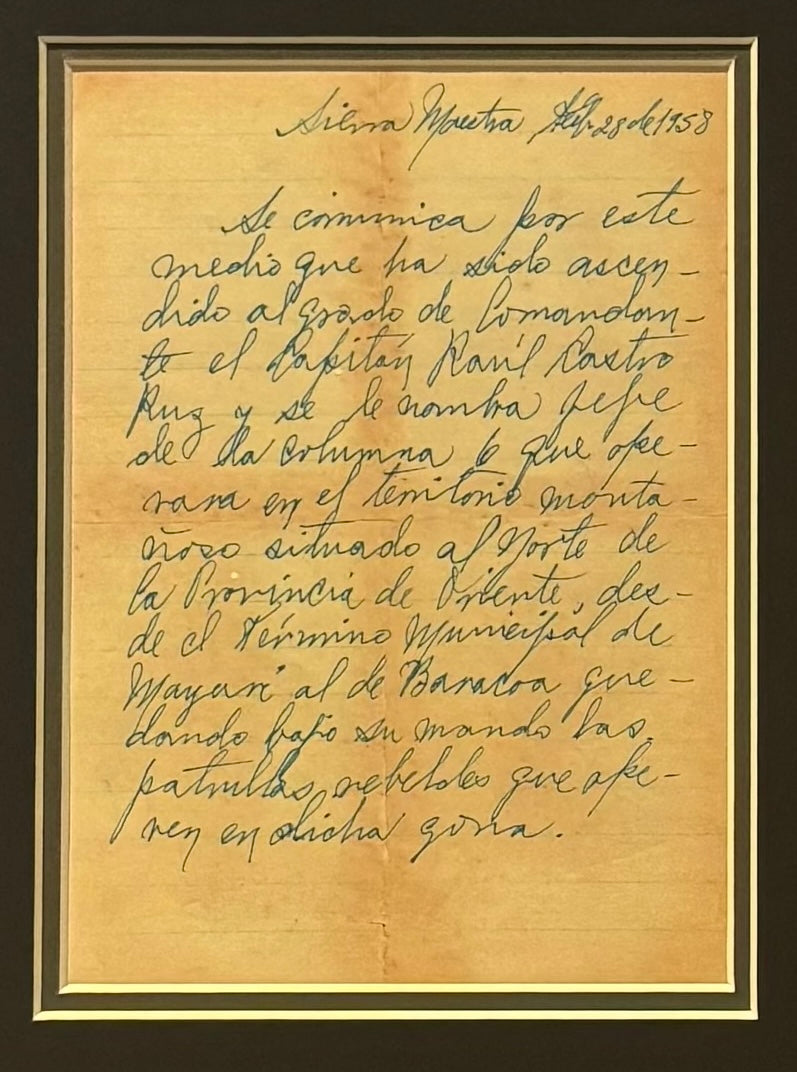 Sierra Maestra Feb. 28 de 1958
Se comunica por este
medio que ha sido ascen-
dido al grado de Comandan-
te el Capitán Raúl Castro
Ruz y se le nombra jefe
de la columna 6 que ope-
rara en el territorio monta-
ñoso situado al Norte de
la Provincia de Oriente, des-
de el Término Municipal de
Mayarí al de Baracoa que-
dando bajo su mando las
patrullas rebeldes que ope-
ren en dicha zona.